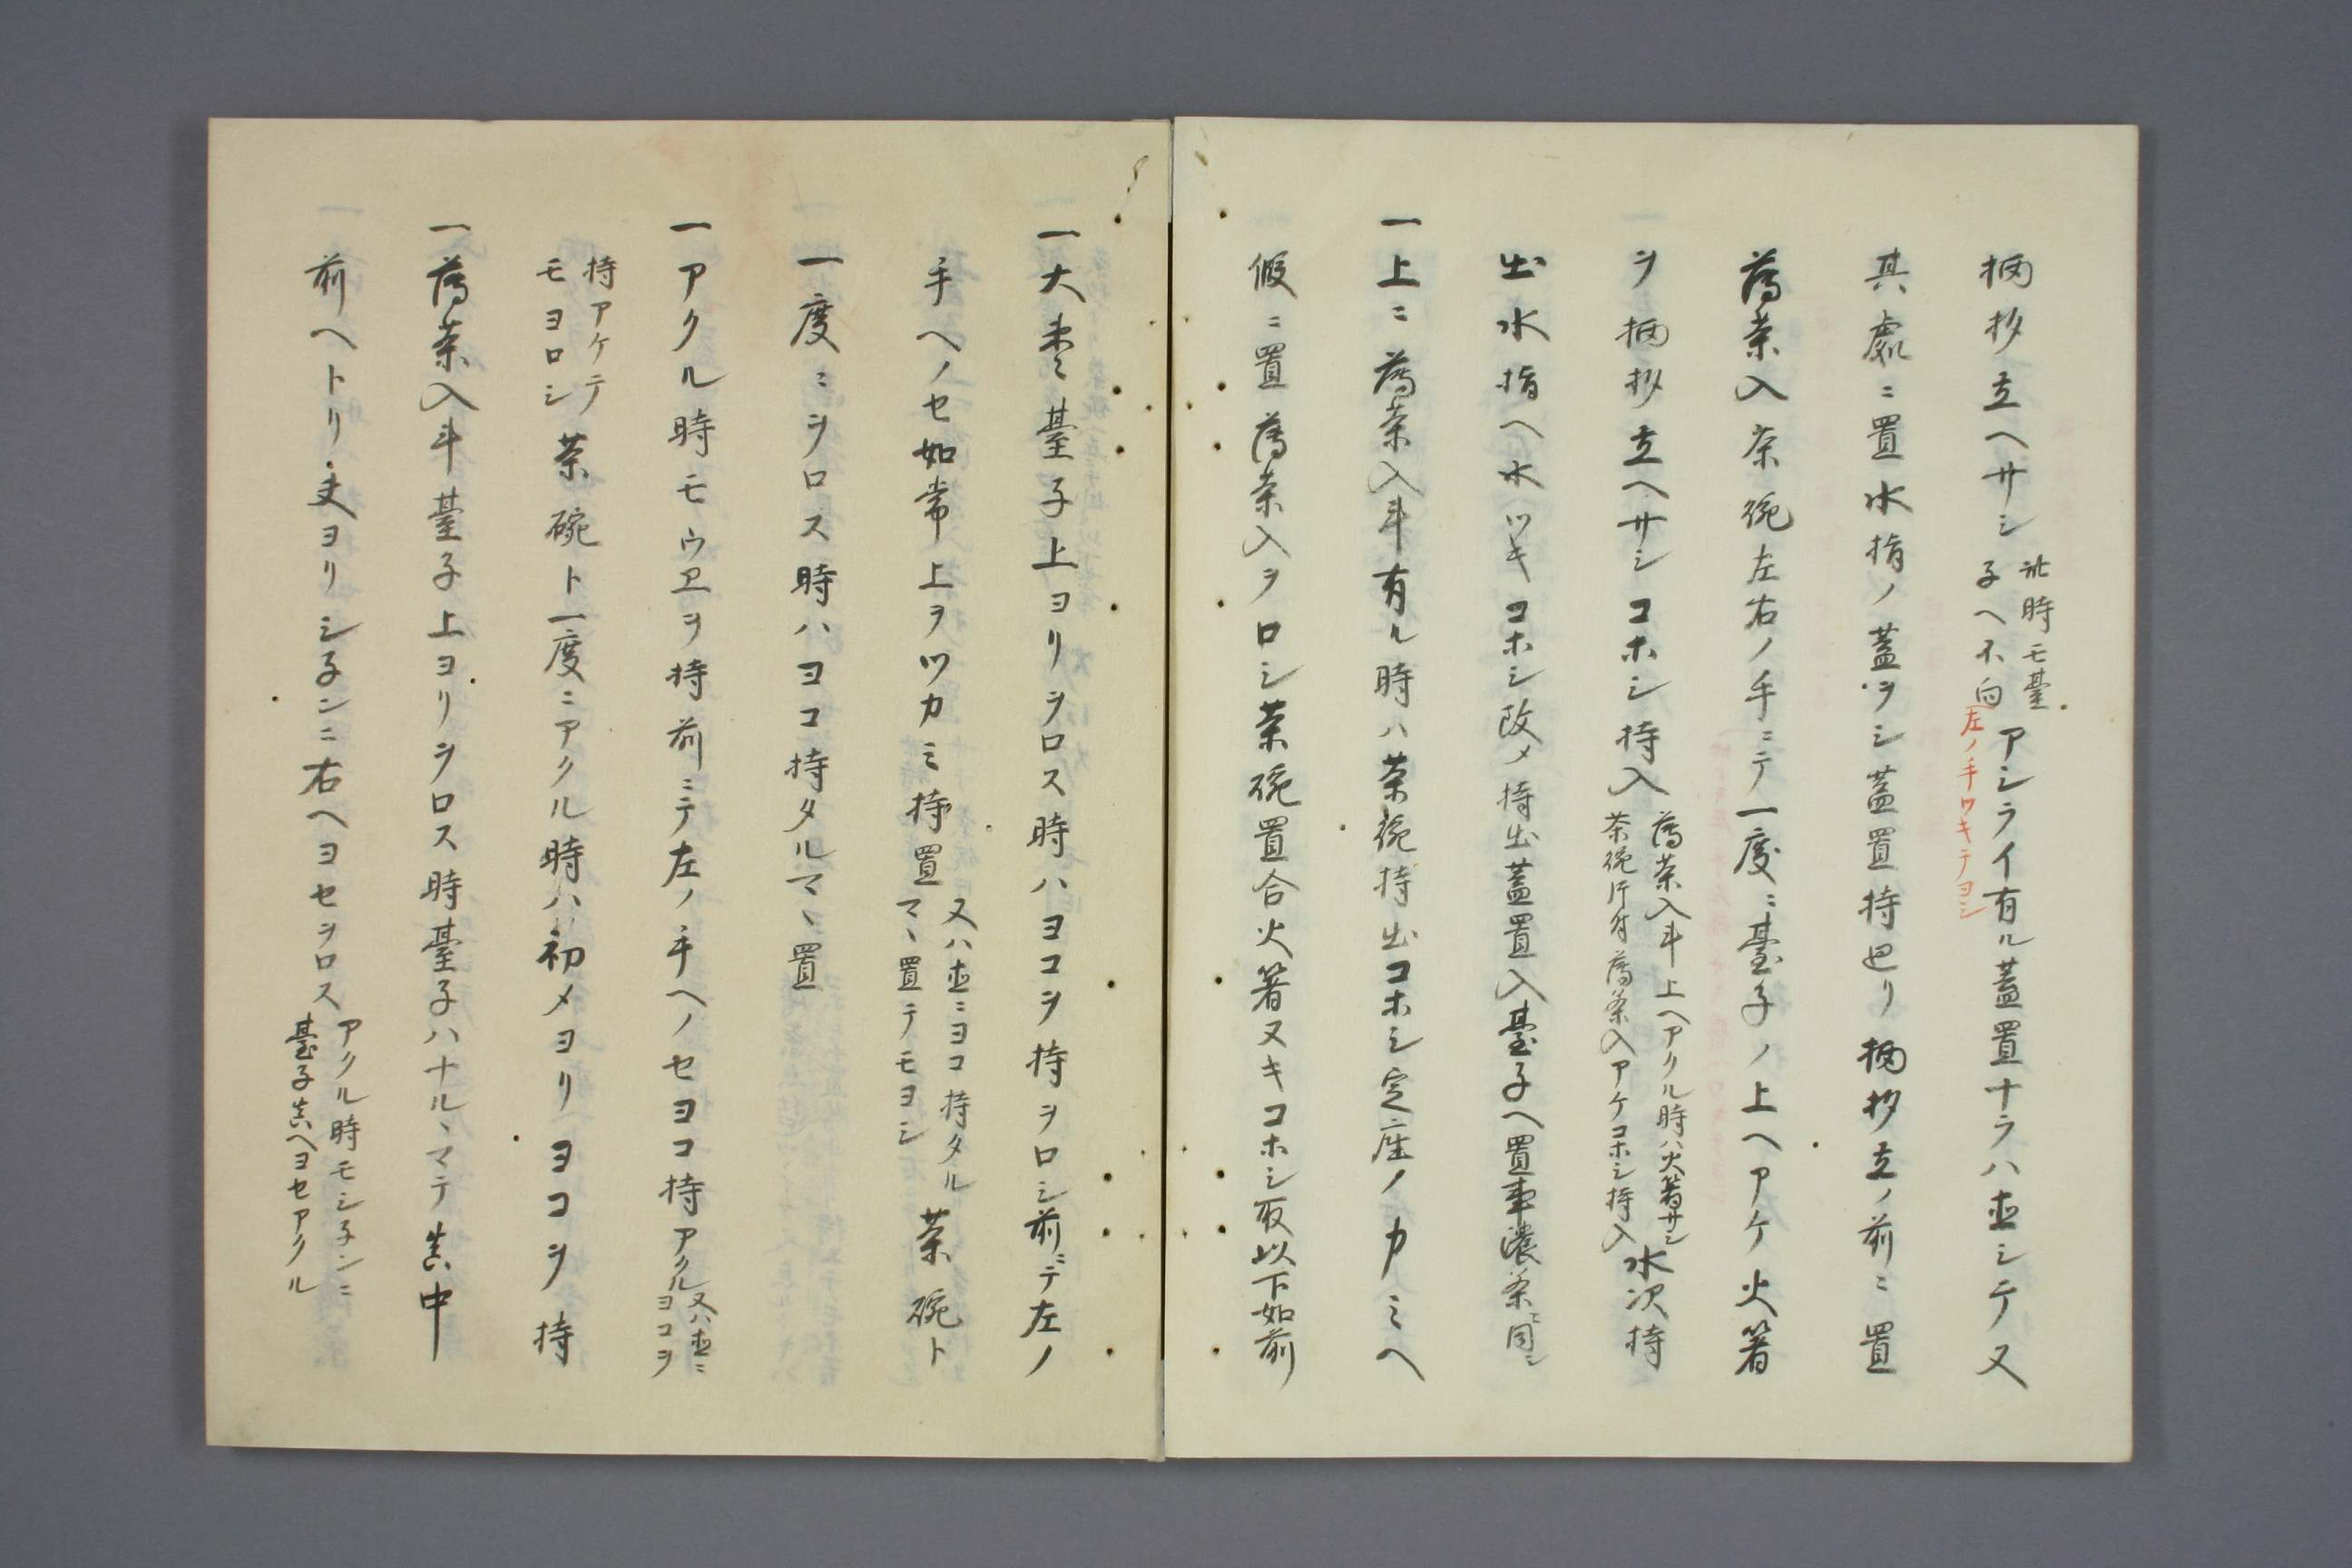 柄杓立ヘサシ
此時モ臺
子ヘ不向
左ノ手ツキテヨシ
アシライ有ル蓋置ナラハ直シテ又
其處ニ置水指ノ蓋ヲシ蓋置持廻リ柄杓立ノ前ニ置
薄茶入茶碗左右ノ手ニテ一度ニ臺子ノ上ヘアケ火箸
ヲ柄杓立ヘサシコホシ持入
薄茶入斗上ヘアクル時ハ火箸サシ
茶碗片付薄茶入アケコホシ持入
水次持
出水指ヘ水ツキコホシ改メ持出蓋置入臺子ヘ置事濃茶ニ同シ
一上ニ薄茶入斗有ル時ハ茶碗持出コホシ定座ノカミヘ
假ニ置薄茶入ヲロシ茶碗置合火箸ヌキコホシ取以下如前
一大棗臺子上ヨリヲロス時ハヨコヲ持ヲロシ前ニテ左ノ
手ヘノセ如常上ヲツカミ持置
又ハ直ニヨコ持タル
マヽ置テモヨシ
茶碗ト
一度ニヲロス時ハヨコ持タルマヽ置
一アクル時モウヱヲ持前ニテ左ノ手ヘノセヨコ持アクル
又ハ直ニ
ヨコヲ
持アケテ
モヨロシ
茶碗ト一度ニアクル時ハ初メヨリヨコヲ持
一薄茶入斗臺子上ヨリヲロス時臺子ハナルヽマテ真中
前ヘトリ夫ヨリシ子ンニ右ヘヨセヲロス
アクル時モシ子ンニ
臺子真ヘヨセアクル